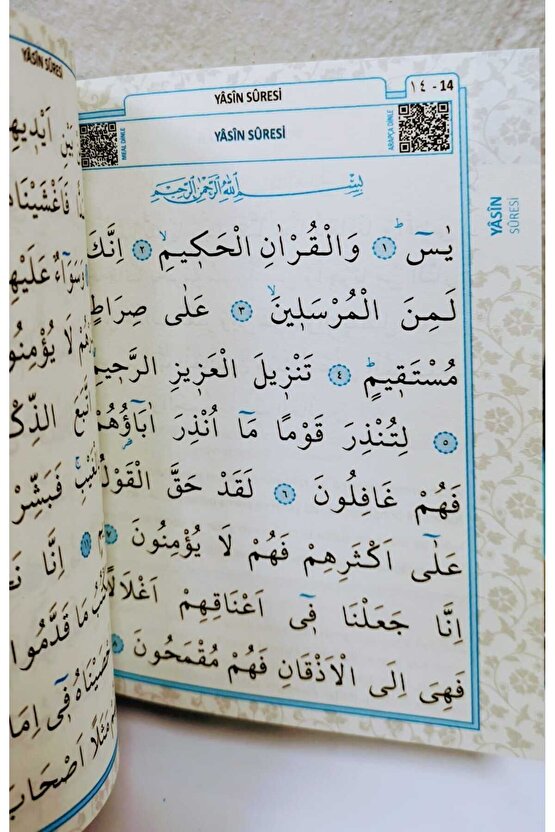 YÂSÎN SÛRESİ
١٤ - 14
MEAL DİNLE
YÂSÎN SÛRESİ
ARAPÇA DİNLE
بِسْمِ اللّٰهِ الرَّحْمٰنِ الرَّحٖيمِ
يٰسٓ ۜ ﴿١﴾ وَالْقُرْاٰنِ الْحَكٖيمِۙ ﴿٢﴾ اِنَّكَ
لَمِنَ الْمُرْسَلٖينَۙ ﴿٣﴾ عَلٰى صِرَاطٍ
مُسْتَقٖيمٍۜ ﴿٤﴾ تَنْزٖيلَ الْعَزٖيزِ الرَّحٖيمِۙ
﴿٥﴾ لِتُنْذِرَ قَوْمًا مَٓا اُنْذِرَ اٰبَٓاؤُ۬هُمْ
فَهُمْ غَافِلُونَ ﴿٦﴾ لَقَدْ حَقَّ الْقَوْلُ
عَلٰٓى اَكْثَرِهِمْ فَهُمْ لَا يُؤْمِنُونَ ﴿٧﴾
اِنَّا جَعَلْنَا فٖٓى اَعْنَاقِهِمْ اَغْلَالًا
فَهِىَ اِلَى الْاَذْقَانِ فَهُمْ مُقْمَحُونَ ﴿٨﴾
YÂSÎN
SÛRESİ
YÂSÎN SÛRESİ
بَيْنِ
فَاَغْشَيْنَا
وَسَوَٓاءٌ عَلَيْهِ
لَا يُؤْمِنُو
الذِّكْ
فَبَشِّرْ
اِنَّا نَ
مَا قَدَّمُوا
فٖٓى اِمَا
مَثَلًا اَصْحَابَ